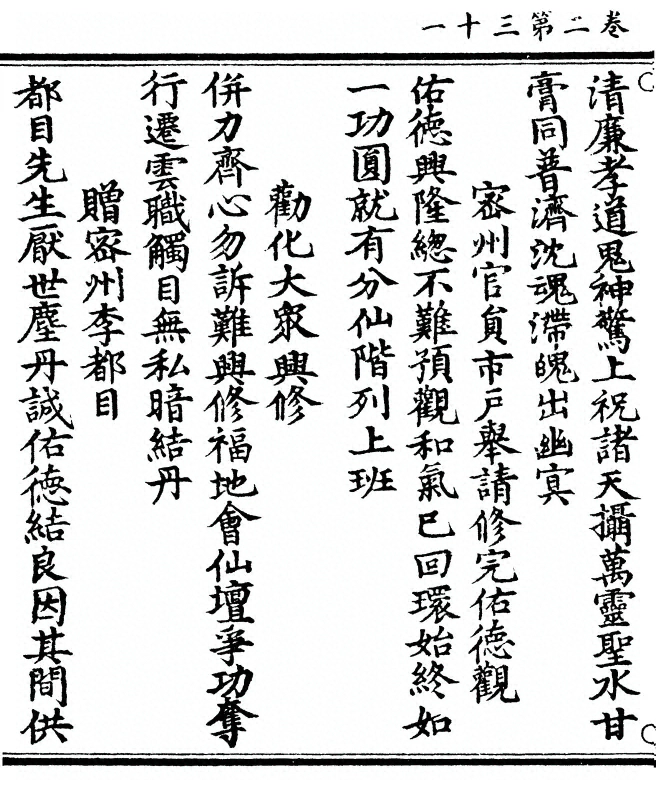 卷二第三十一
清廉孝道鬼神驚上祝諸天攝萬靈聖水甘
膏同普濟沈魂滯魄出幽㝠
宻州官員市戸舉請修完佑德觀
佑德興隆總不難預觀和氣已回環始終如
一功圓就有分仙階列上班
勸化大衆興修
併力齊心勿訴難興修福地會仙壇爭功奪
行遷雲職觸目無私暗結丹
贈宻州李都目
都目先生厭世塵丹誠佑德結良因其間供